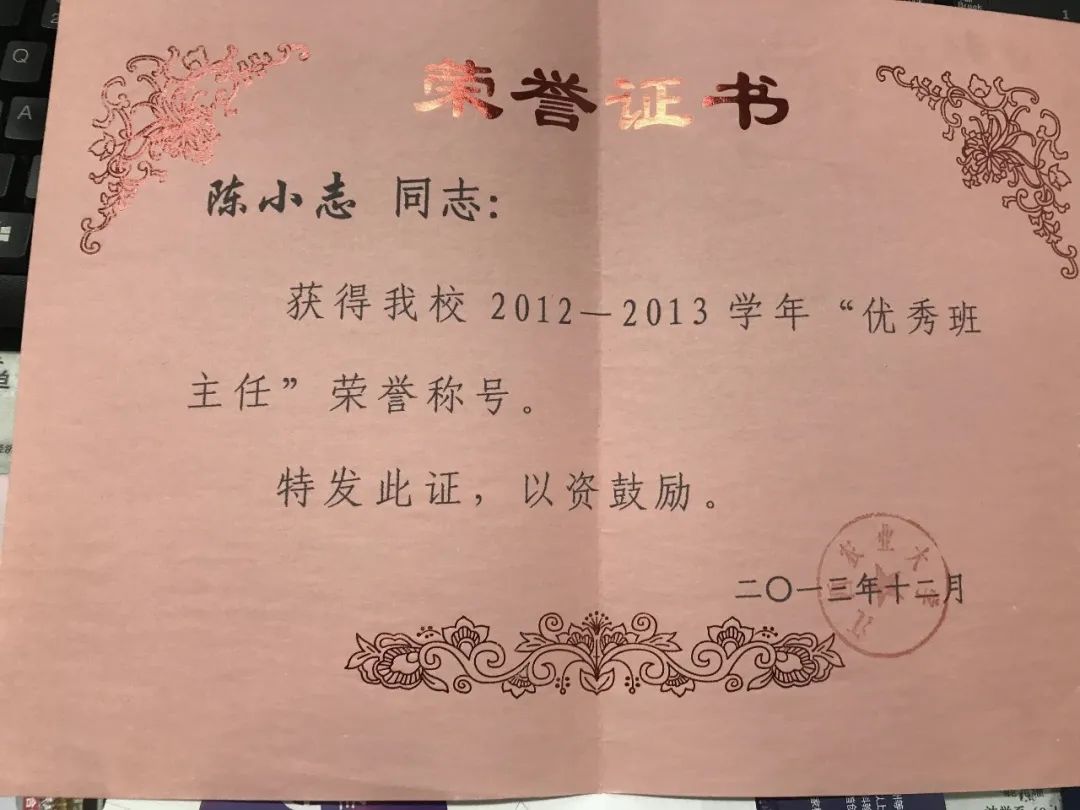 荣誉证书
陈小志 同志：
获得我校 2012—2013 学年 “优秀班
主任” 荣誉称号。
特发此证，以资鼓励。
农业大
二〇一三年十二月
Q
A